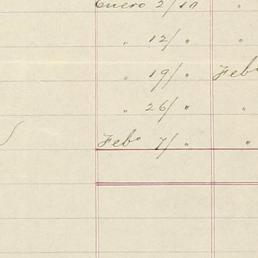 Enero 2/10 "
" 12/ "
" 19/ " Feb°
" 26/ " "
Feb° 7/ " "